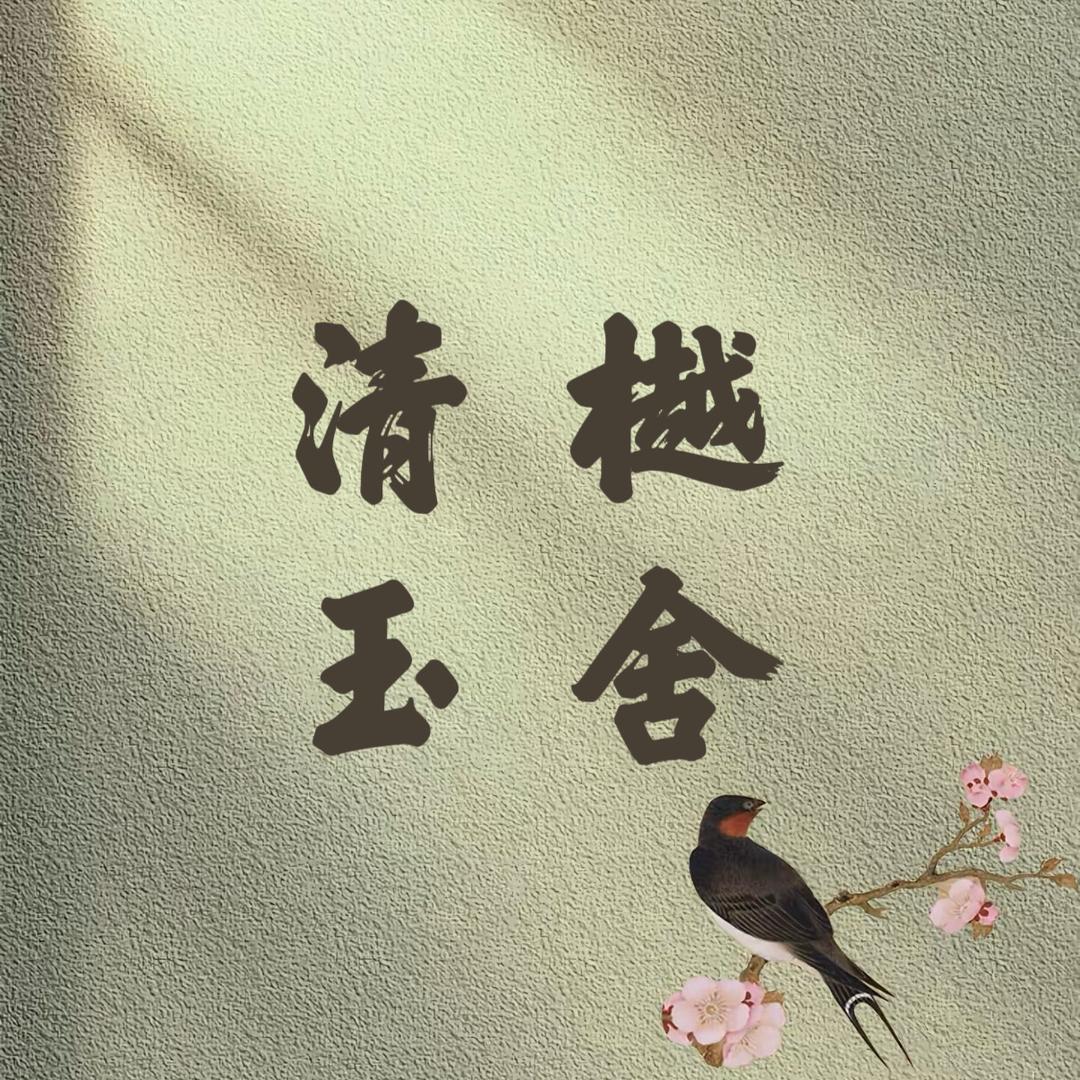 清樾
玉舍